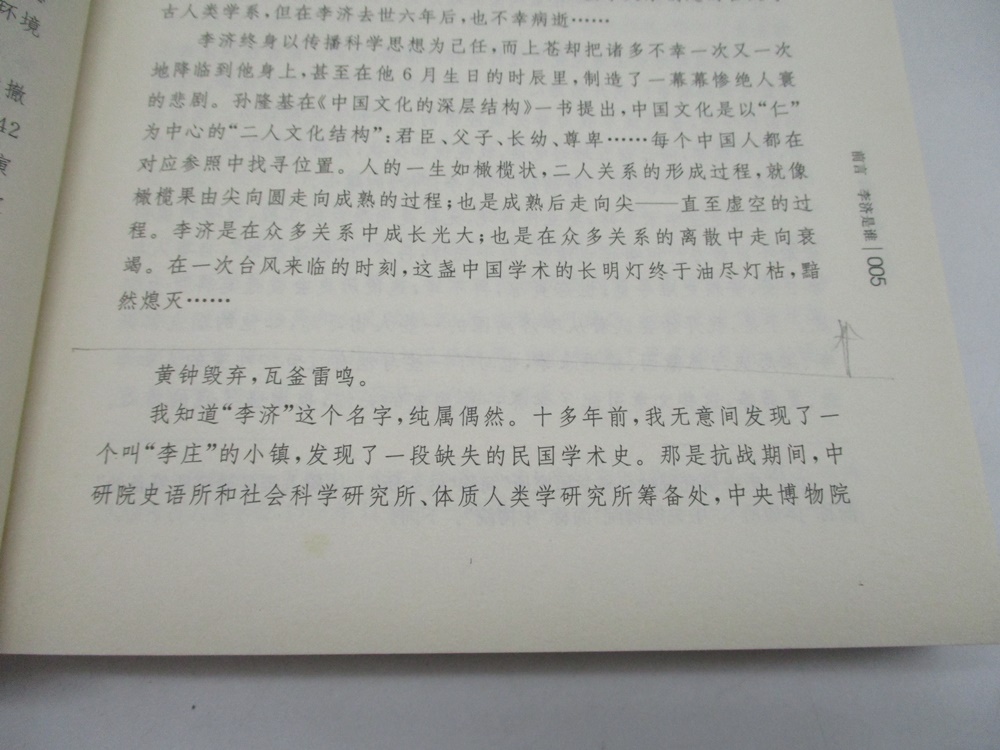 古人类学系，但在李济去世六年后，也不幸病逝……
李济终身以传播科学思想为己任，而上苍却把诸多不幸一次又一次
地降临到他身上，甚至在他6月生日的时辰里，制造了一幕幕惨绝人寰
的悲剧。孙隆基在《中国文化的深层结构》一书提出，中国文化是以“仁”
为中心的“二人文化结构”：君臣、父子、长幼、尊卑……每个中国人都在
对应参照中找寻位置。人的一生如橄榄状，二人关系的形成过程，就像
橄榄果由尖向圆走向成熟的过程；也是成熟后走向尖——直至虚空的过
程。李济是在众多关系中成长光大；也是在众多关系的离散中走向衰
竭。在一次台风来临的时刻，这盏中国学术的长明灯终于油尽灯枯，黯
然熄灭……
黄钟毁弃，瓦釜雷鸣。
我知道“李济”这个名字，纯属偶然。十多年前，我无意间发现了一
个叫“李庄”的小镇，发现了一段缺失的民国学术史。那是抗战期间，中
研院史语所和社会科学研究所、体质人类学研究所筹备处，中央博物院
前言 李济是谁 | 005
环境
撤
42